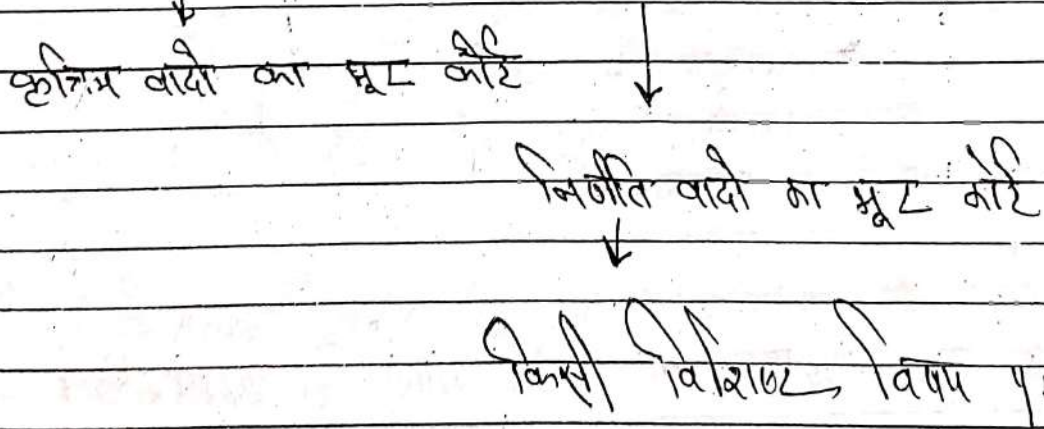 कृत्रिम वादो का मूट कोर्ट
निर्णीत वादो का मूट कोर्ट
किसी विशिष्ट विषय प